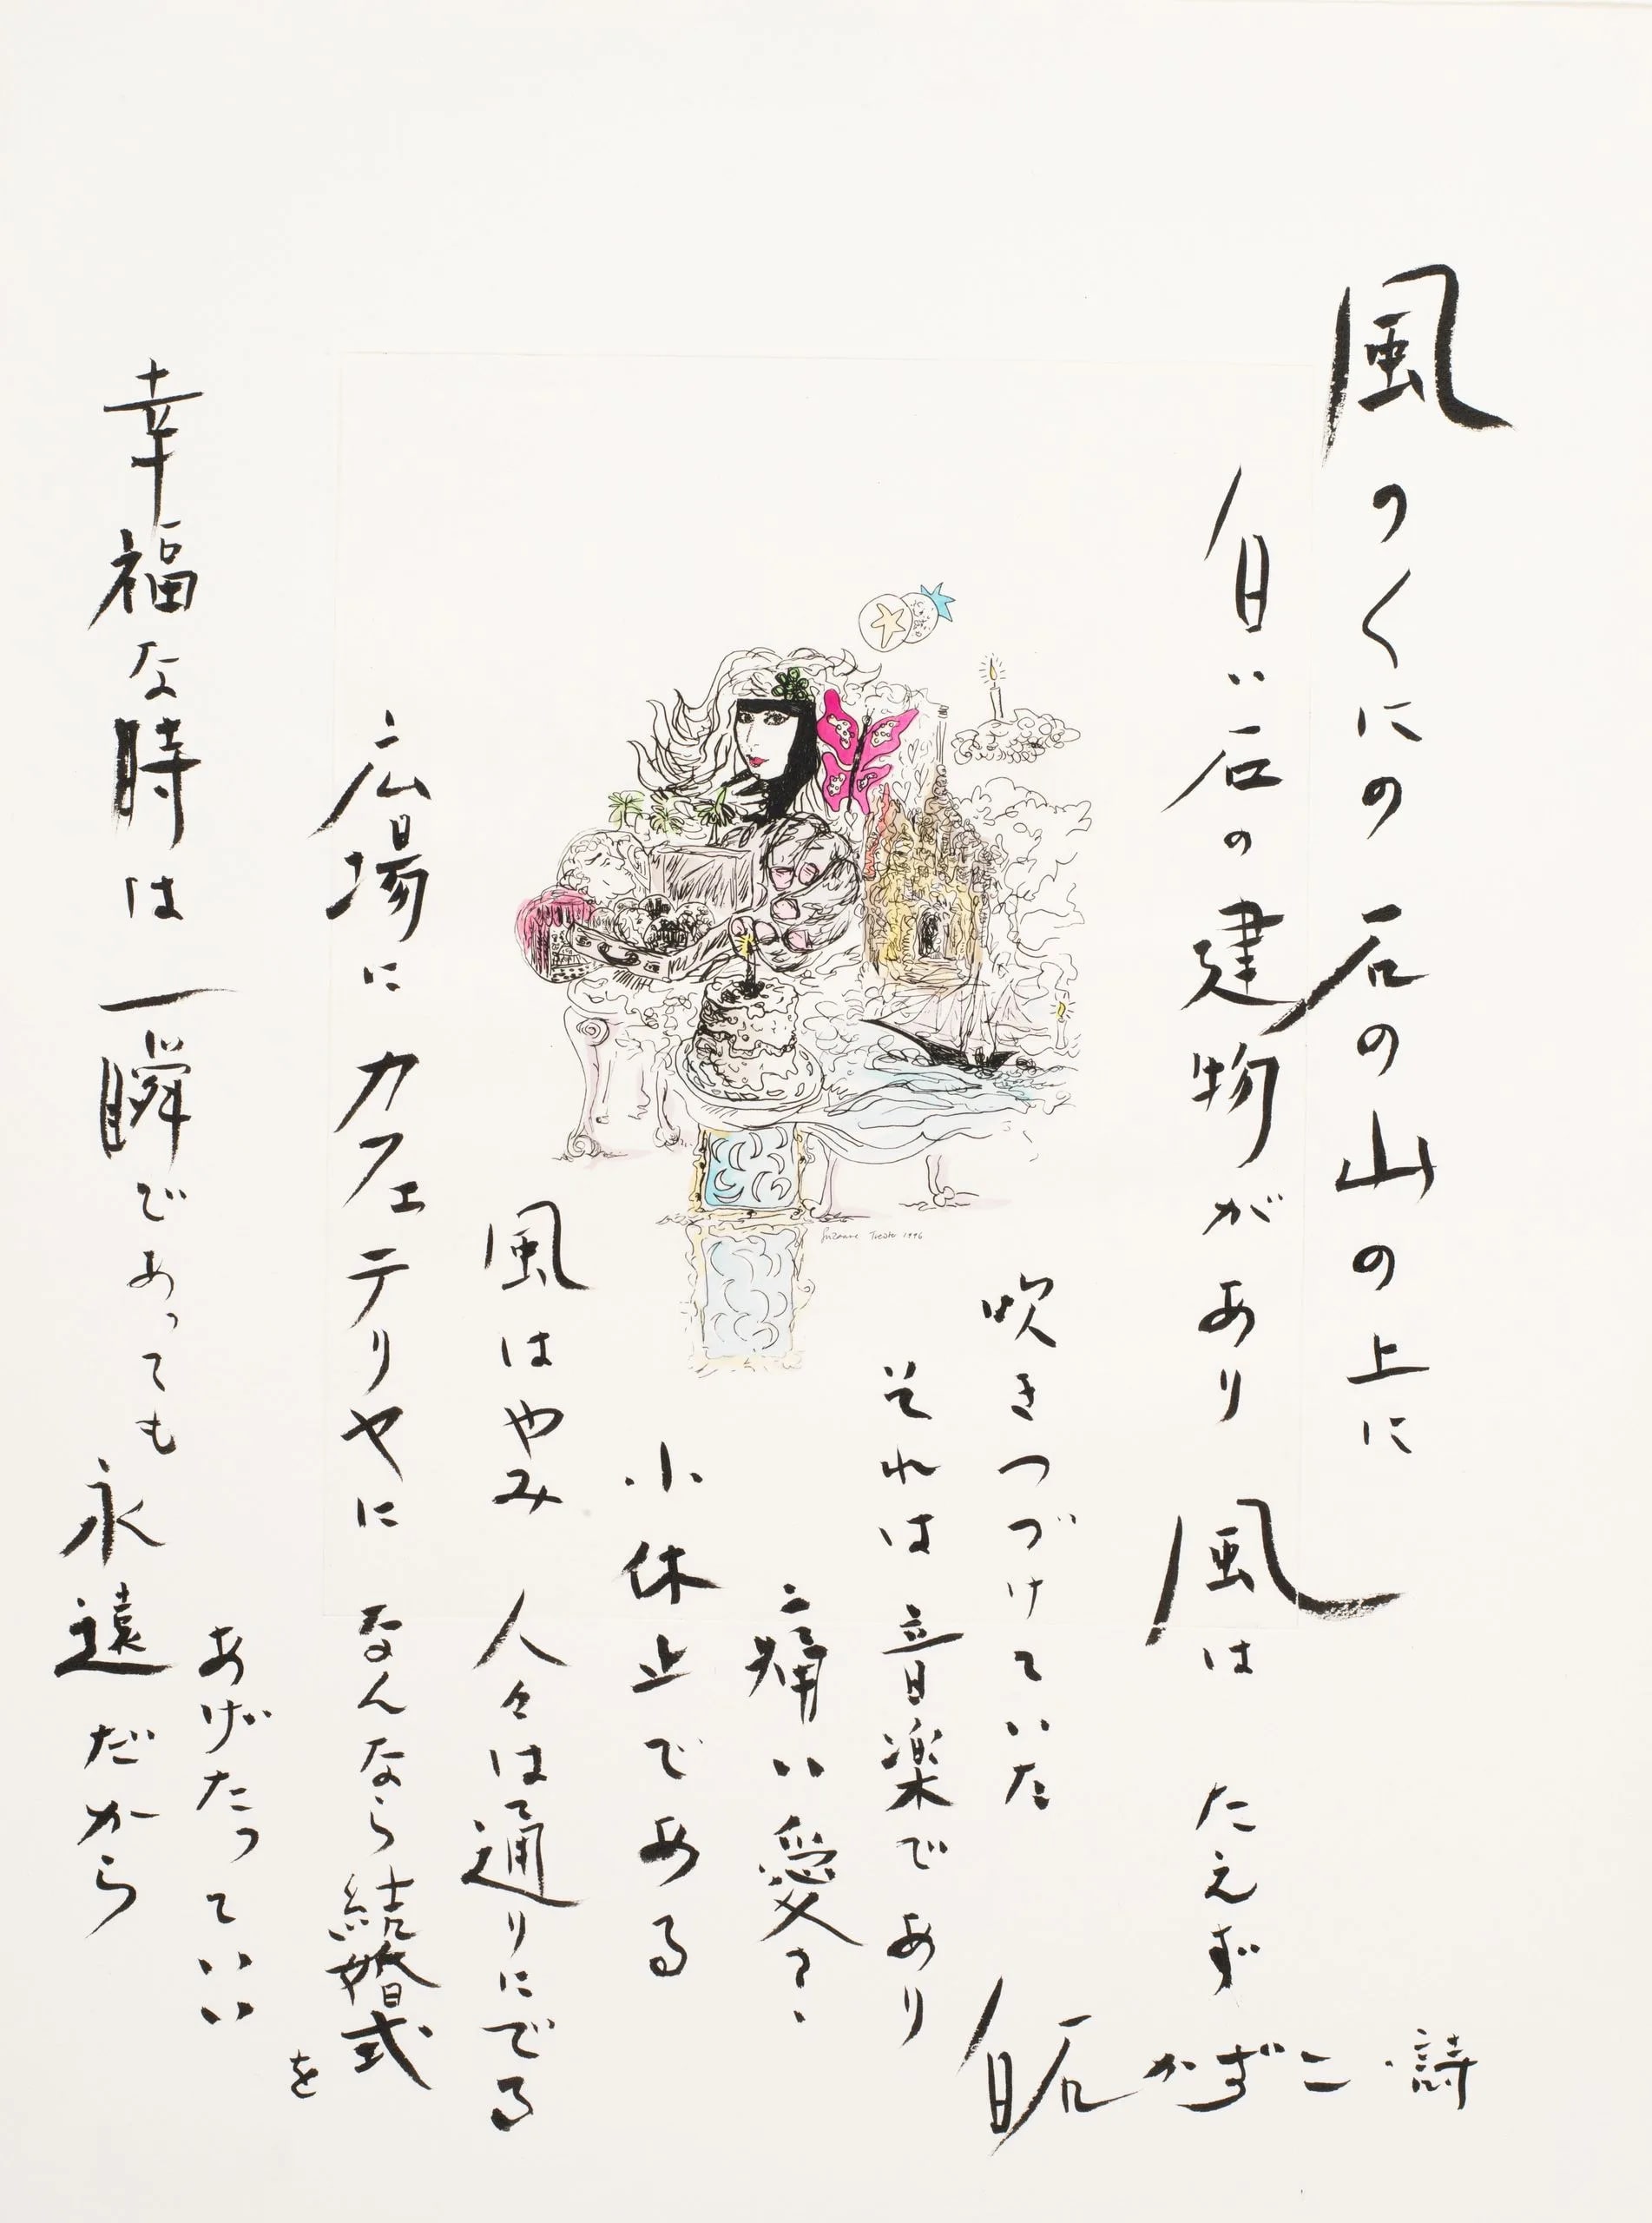 風のくにの 石の山の上に
白い石の建物があり 風は たえず
吹きつづけていた
それは 音楽であり
痛い愛る、
小休止である
風はやみ 人々は通りにでる
広場に カフェテリヤに なんなら結婚式
を
あげたっていい
幸福な時は 一瞬であっても 永遠だから
白石かずこ・詩
Suzanne Treister 1996